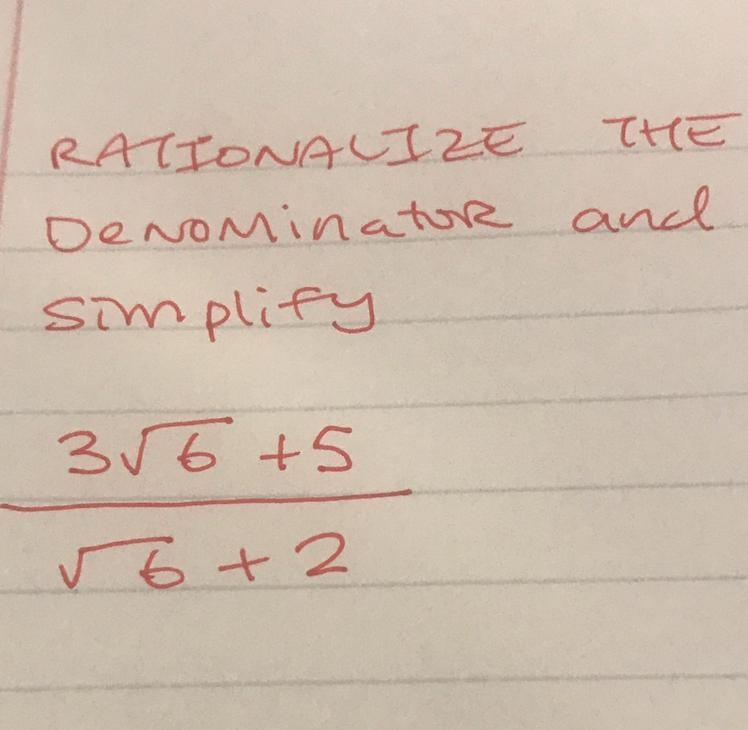 RATIONALIZE THE
DeNOMinatoR and
simplify
3√6 +5
√6 + 2